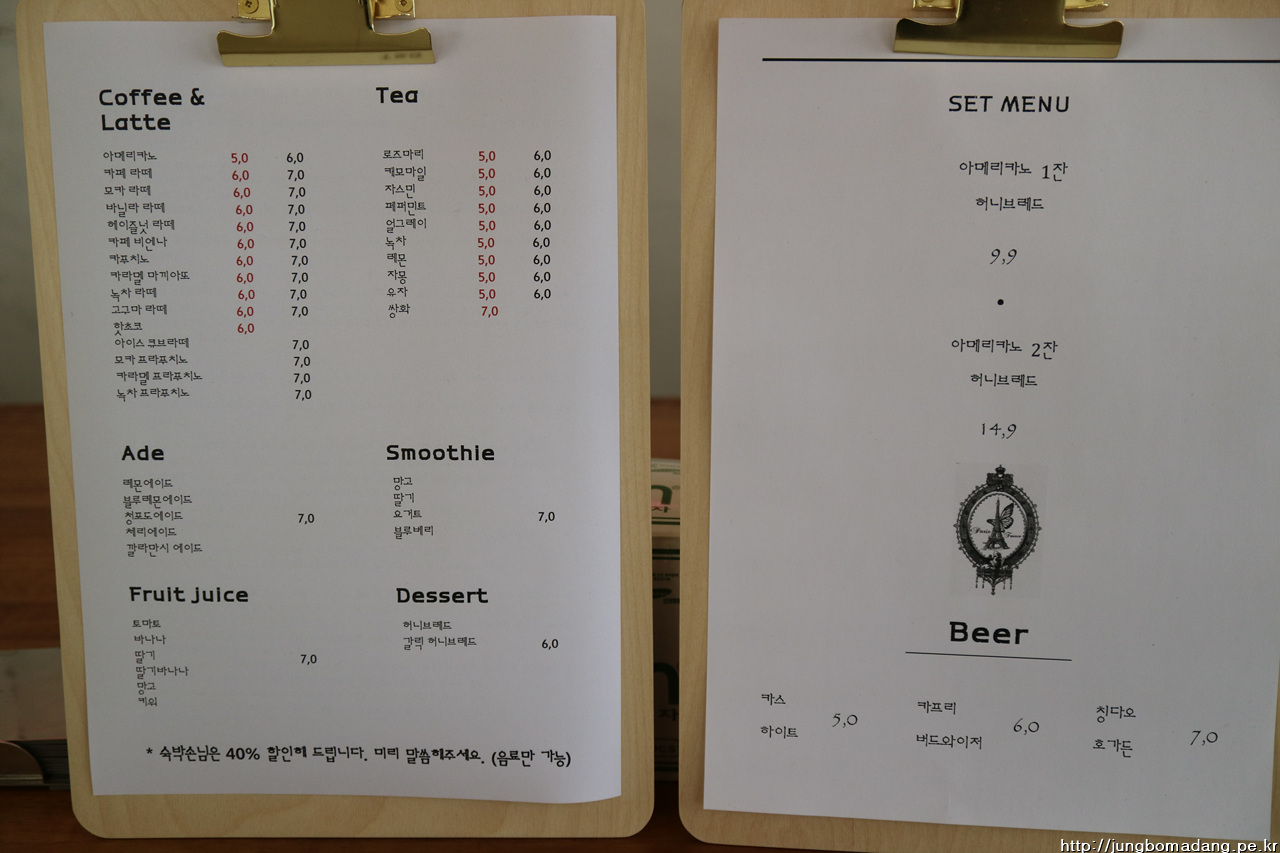 Coffee &
Latte
아메리카노 5,0 6,0
카페 라떼 6,0 7,0
모카 라떼 6,0 7,0
바닐라 라떼 6,0 7,0
헤이즐넛 라떼 6,0 7,0
카페 비엔나 6,0 7,0
카푸치노 6,0 7,0
카라멜 마끼아또 6,0 7,0
녹차 라떼 6,0 7,0
고구마 라떼 6,0 7,0
핫초코 6,0
아이스 큐브라떼 7,0
모카 프라푸치노 7,0
카라멜 프라푸치노 7,0
녹차 프라푸치노 7,0
Tea
로즈마리 5,0 6,0
캐모마일 5,0 6,0
자스민 5,0 6,0
페퍼민트 5,0 6,0
얼그레이 5,0 6,0
녹차 5,0 6,0
레몬 5,0 6,0
자몽 5,0 6,0
유자 5,0 6,0
쌍화 7,0
Ade
레몬에이드
블루레몬에이드
청포도에이드 7,0
체리에이드
깔라만시 에이드
Smoothie
망고
딸기
요거트 7,0
블루베리
Fruit juice
토마토
바나나
딸기 7,0
딸기바나나
망고
키위
Dessert
허니브레드
갈릭 허니브레드 6,0
* 숙박손님은 40% 할인해 드립니다. 미리 말씀해주세요. (음료만 가능)
SET MENU
아메리카노 1잔
허니브레드
9,9
•
아메리카노 2잔
허니브레드
14,9
Paris France
Beer
카스
하이트 5,0
카프리
버드와이저 6,0
칭다오
호가든 7,0
http://jungbomadang.pe.kr